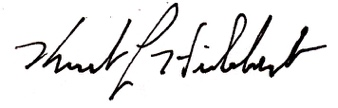 Kurt L Hibbert